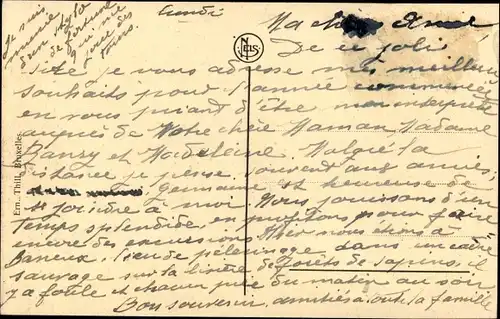 Lundi
Ma chère Aimée
De ce joli
site je vous adresse mes meilleurs
souhaits pour l'année commencée
en vous priant d'être mon interprète
auprès de Votre chère Maman Madame
et Madeleine. Malgré la
distance je pense souvent aux amies,
Germaine est heureuse de
se joindre à moi. Nous jouissons d'un
temps splendide, en profitons pour faire
encore des excursions. Hier nous étions à
Baneux, lieu de pèlerinage dans un cadre
sauvage sur la lisière de forêts de sapins, il
y a foule et chaque jour du matin au soir
Bon souvenir, amitiés à toute la famille
Je suis
dans
de
qui me
joue des
tours.
NELS
Ern. Thill, Bruxelles.